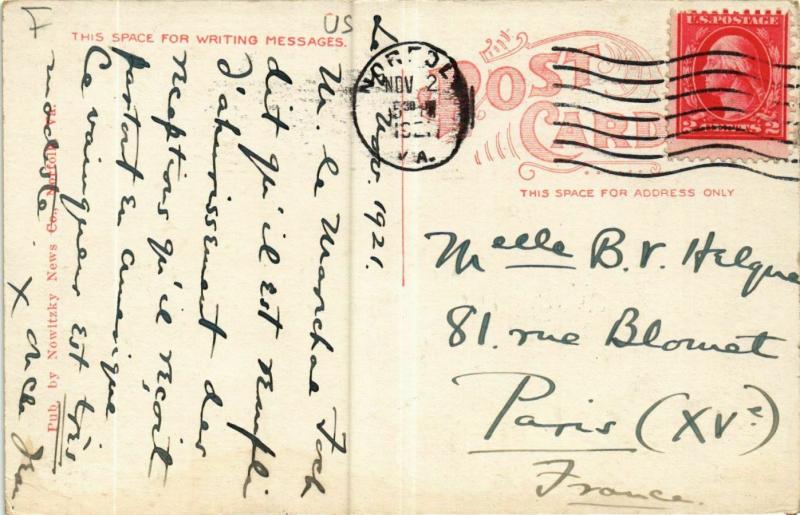 F
US
THIS SPACE FOR WRITING MESSAGES.
POST
CARD
THIS SPACE FOR ADDRESS ONLY
NORFOLK
NOV 2
5 30 PM
1921
VA.
U.S. POSTAGE
2 CENTS 2
Le 2 Nov. 1921.
Mr. le Maréchal Foch
dit qu'il est rempli
d'ahurissement des
réceptions qu'il reçoit
partout en Amérique
Ce vainqueur est très
modeste.
X oncle Jean
Pub. by Nowitzky News Co., Norfolk, Va.
Melle B. V. Helque
81. rue Blomet
Paris (XVe)
France.